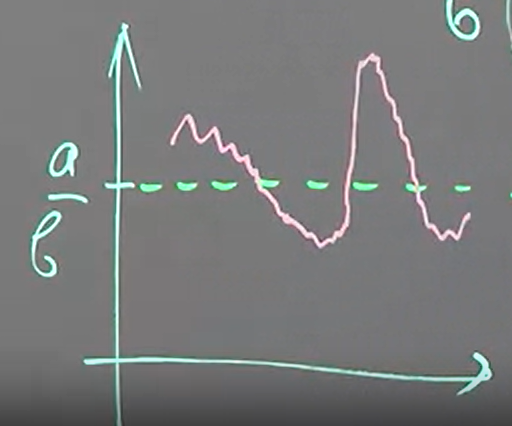 6
a
b